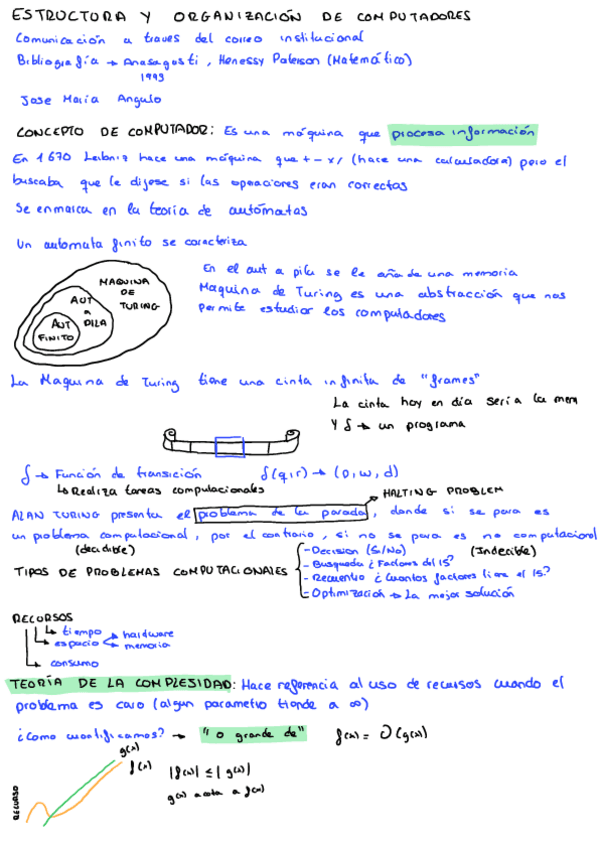 ESTRUCTURA Y ORGANIZACIÓN DE COMPUTADORES
Comunicación a traves del correo institucional
Bibliografía → Anasagasti, Henessy Paterson (Matemático)
1993
Jose Maria Angulo
CONCEPTO DE COMPUTADOR: Es una máquina que procesa información
En 1670 Leibniz hace una máquina que + - x / (hace una calculadora) pero el
buscaba que le dijese si las operaciones eran correctas
Se enmarca en la teoría de autómatas
Un automata finito se caracteriza
MAQUINA DE TURING
AUT a PILA
AUT FINITO
En el aut a pila se le añade una memoria
Maquina de Turing es una abstracción que nos
permite estudiar los computadores
La Maquina de Turing tiene una cinta infinita de "frames"
La cinta hoy en día sería la mem
Y δ → un programa
δ → Función de transición δ(q,r) → (p,w,d)
↳ Realiza tareas computacionales
HALTING PROBLEM
ALAN TURING presenta el problema de la parada, donde si se para es
un problema computacional, por el contrario, si no se para es no computacional
(decidible) (Indecible)
TIPOS DE PROBLEMAS COMPUTACIONALES
- Decision (Si/No)
- Busqueda ¿Factores del 15?
- Recuento ¿Cuantos factores tiene el 15?
- Optimización → La mejor solución
RECURSOS
↳ tiempo
↳ espacio
hardware
memoria
↳ consumo
TEORÍA DE LA COMPLESIDAD: Hace referencia al uso de recursos cuando el
problema es caro (algun parametro tiende a ∞)
¿Como cuantificamos? → "O grande de" f(x) = O(g(x))
g(x)
f(x)
RECURSO
|f(x)| ≤ |g(x)|
g(x) acota a f(x)